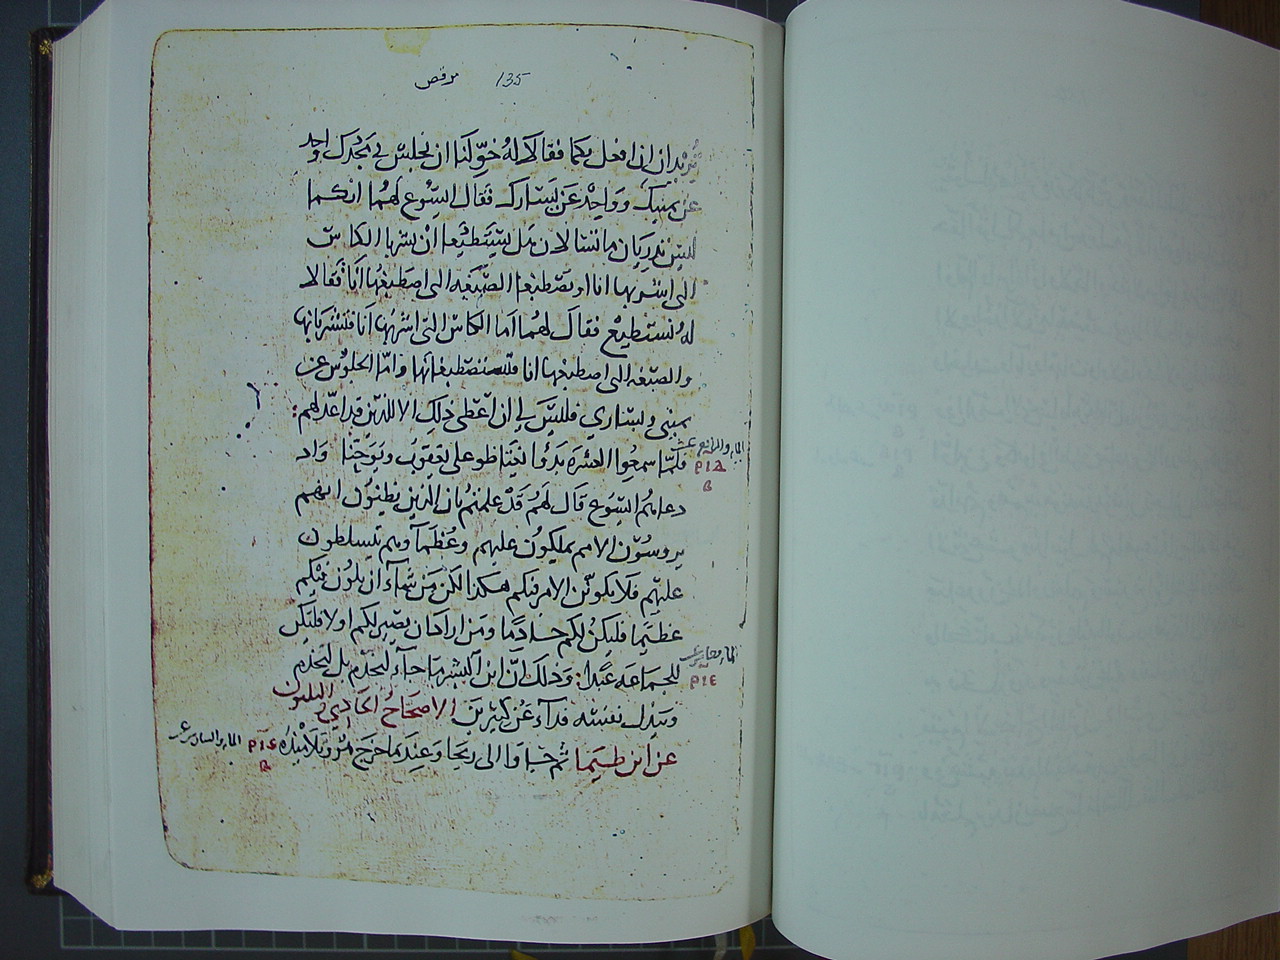 مرقص 135
تريدان ان افعل بكما فقالا له خوّلنا ان نجلس في مجدك واحد
عن يمينك وواحد عن يسارك فقال ليسوع لهما انكما
ليس تدريان ما تسالان هل تستطيعا ان تشربا الكاس
التى اشربها انا او تصطبغا الصبغه التى اصطبغها انا فقالا
له نستطيع فقال لهما اما الكاس التى اشربها انا فتشربانها
والصبغه التى اصطبغها انا فلتصطبغانها واما الجلوس عن
يميني ويساري فليس لي ان اعطي ذلك الا للذين قد اعد لهم:
الماه والرابع عشر
فلما سمعوا العشره بدوا يغتاظو على يعقوب ويوحنا واد
دعاهم اليسوع قال لهم قد علمتم بان الذين يظنون انهم
يروسون الامم يملكون عليهم وعظماوهم يتسلطون
عليهم فلا يكونن الامر فيكم هكذا لكن من شاء ان يكون فيكم
عظيما فليكن لكم خادما ومن اراد ان يصير لكم اولا فليكن
للجماعه عبدا: وذلك ان ابن البشر ما جاء ليخدم بل ليخدم
ويبذل نفسه فداء عن كثيرين الاصحاح الحادي والثلثون
عن ابن طيما ثم جاوا الى ريحا وعندما خرج هو وتلاميذه
الماه والسادس عشر